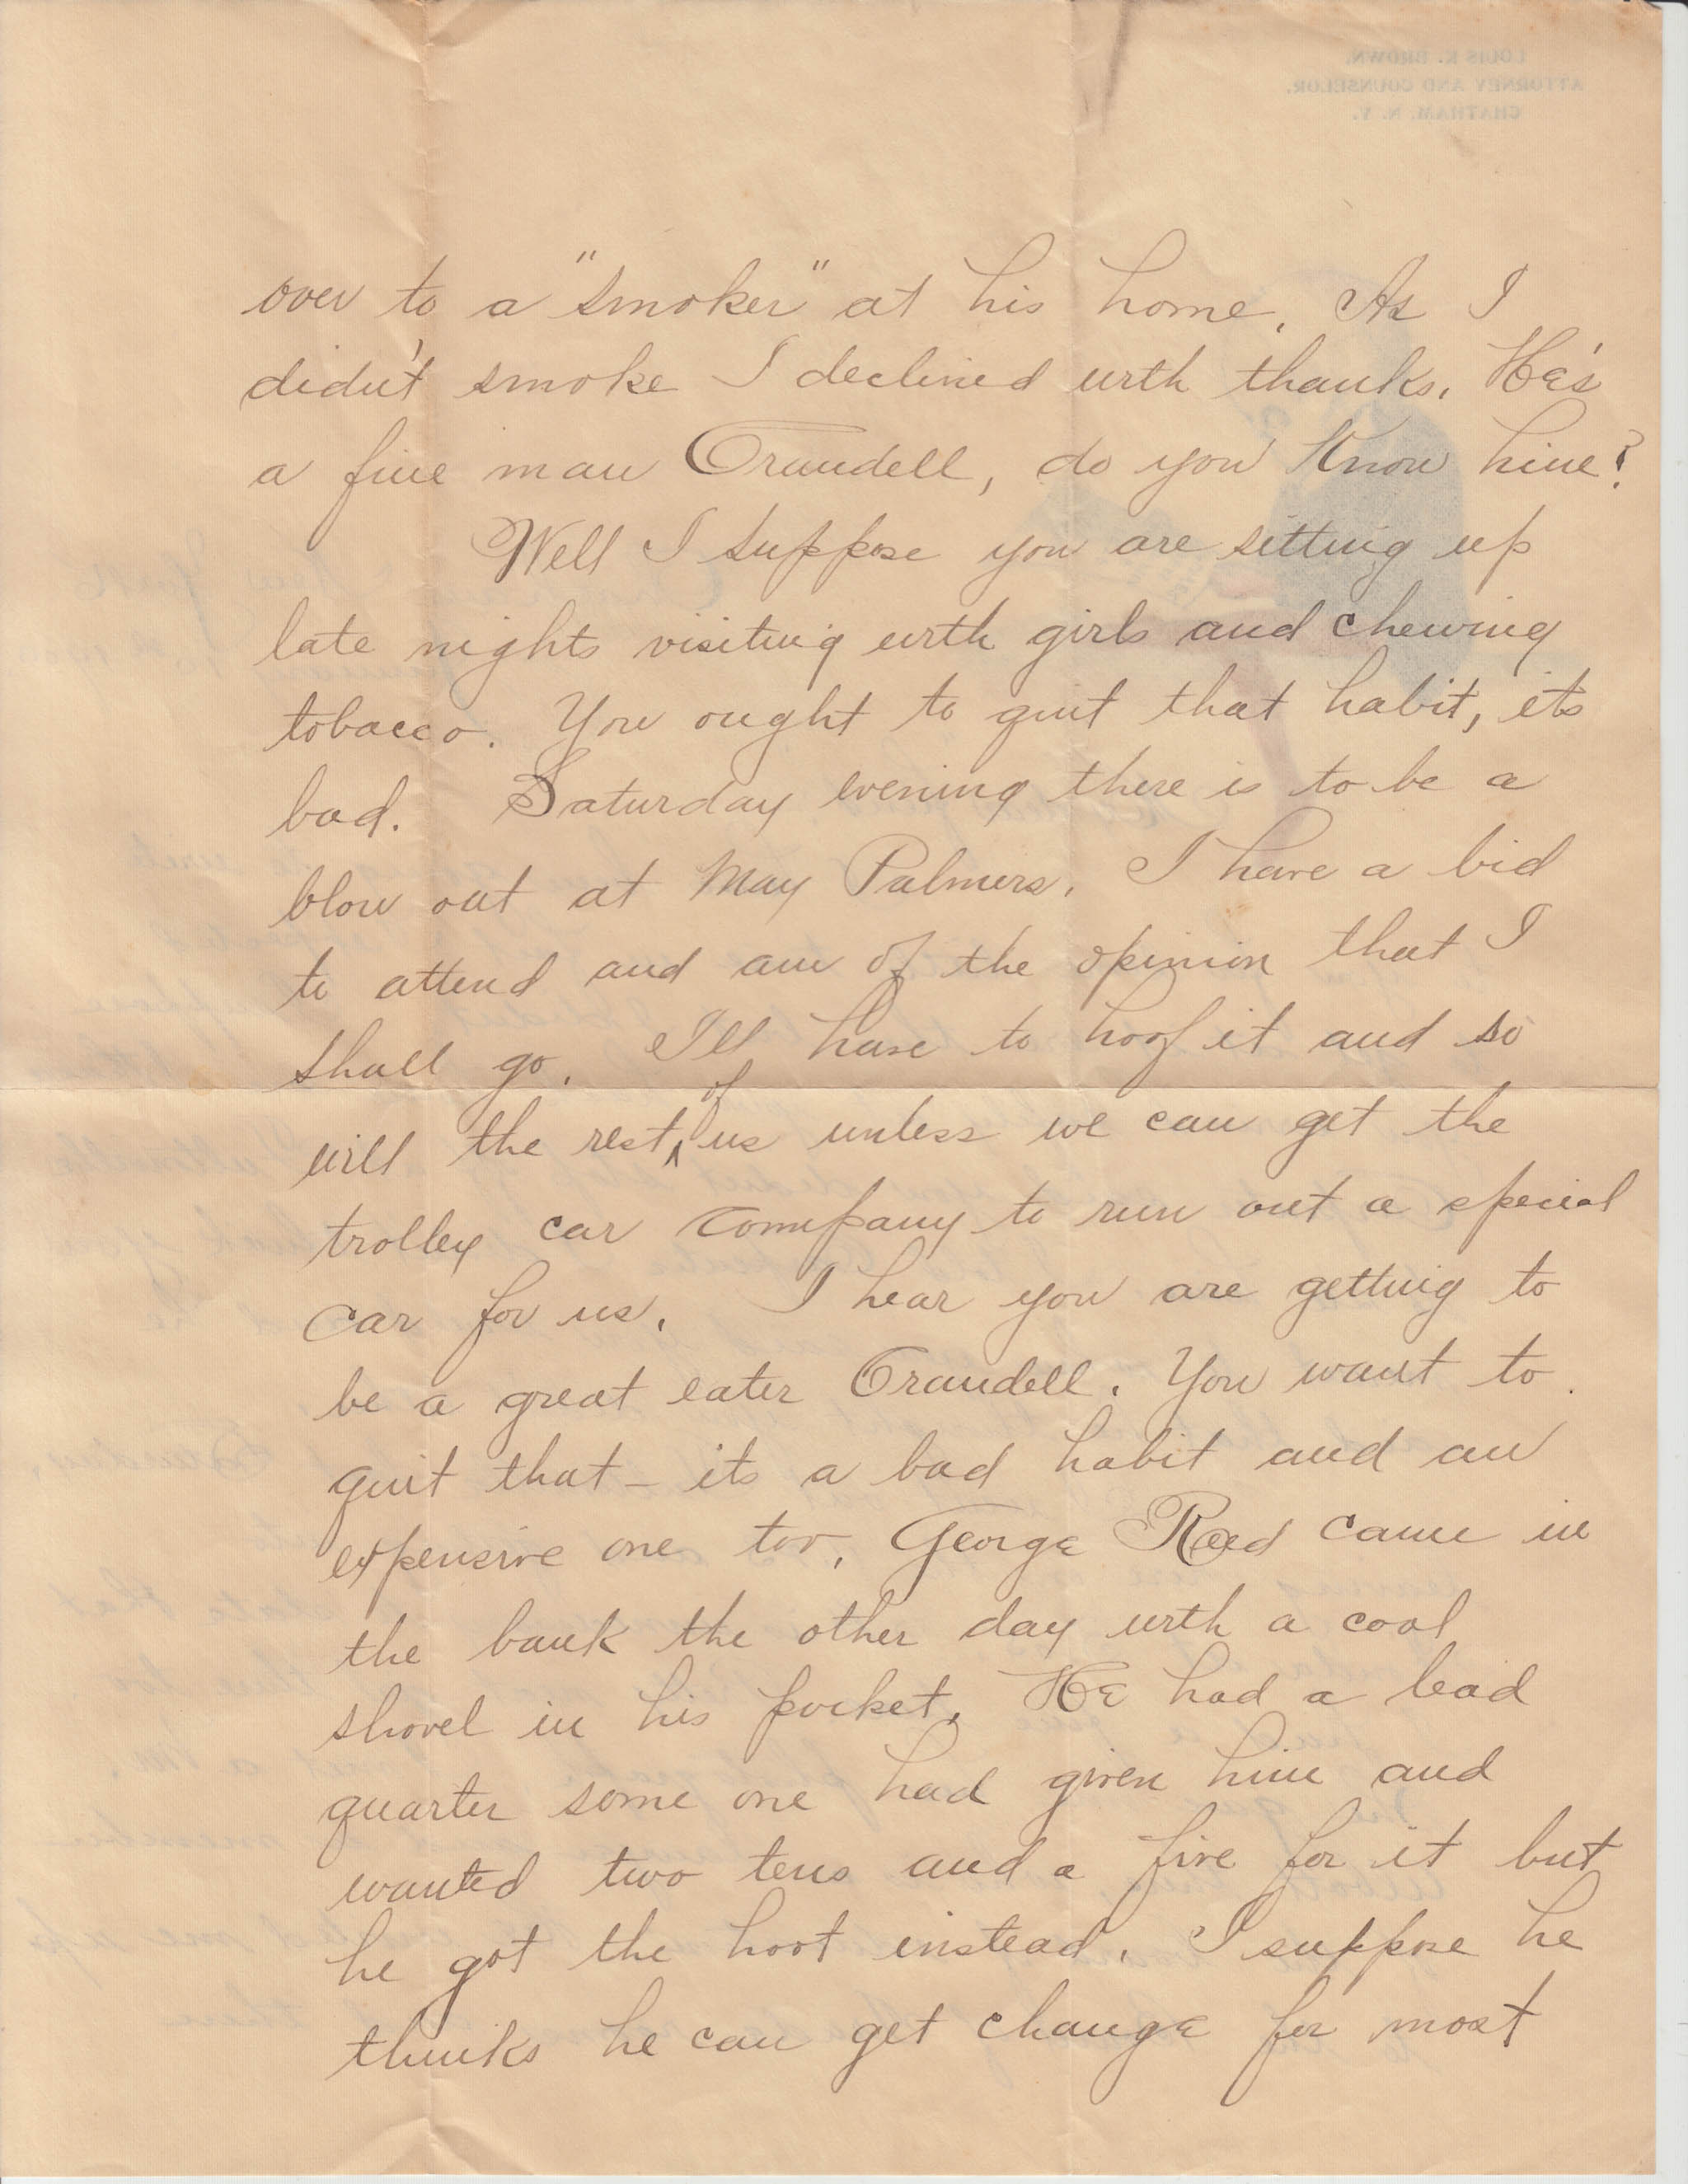 LOUIS K. BROWN,
ATTORNEY AND COUNSELOR,
CHATHAM, N. Y.
over to a "smoker" at his home. As I
didn't smoke I declined with thanks. He's
a fine man Crandell, do you know him?
Well I suppose you are sitting up
late nights visiting with girls and chewing
tobacco. You ought to quit that habit, its
bad. Saturday evening there is to be a
blow out at May Palmers. I have a bid
to attend and am of the opinion that I
shall go. I'll have to hoof it and so
will the rest of us unless we can get the
trolley car company to run out a special
car for us. I hear you are getting to
be a great eater Crandell. You want to
quit that - its a bad habit and an
expensive one too. George Reed came in
the bank the other day with a coal
shovel in his pocket. He had a lead
quarter some one had given him and
wanted two tens and a five for it but
he got the hoot instead. I suppose he
thinks he can get change for most